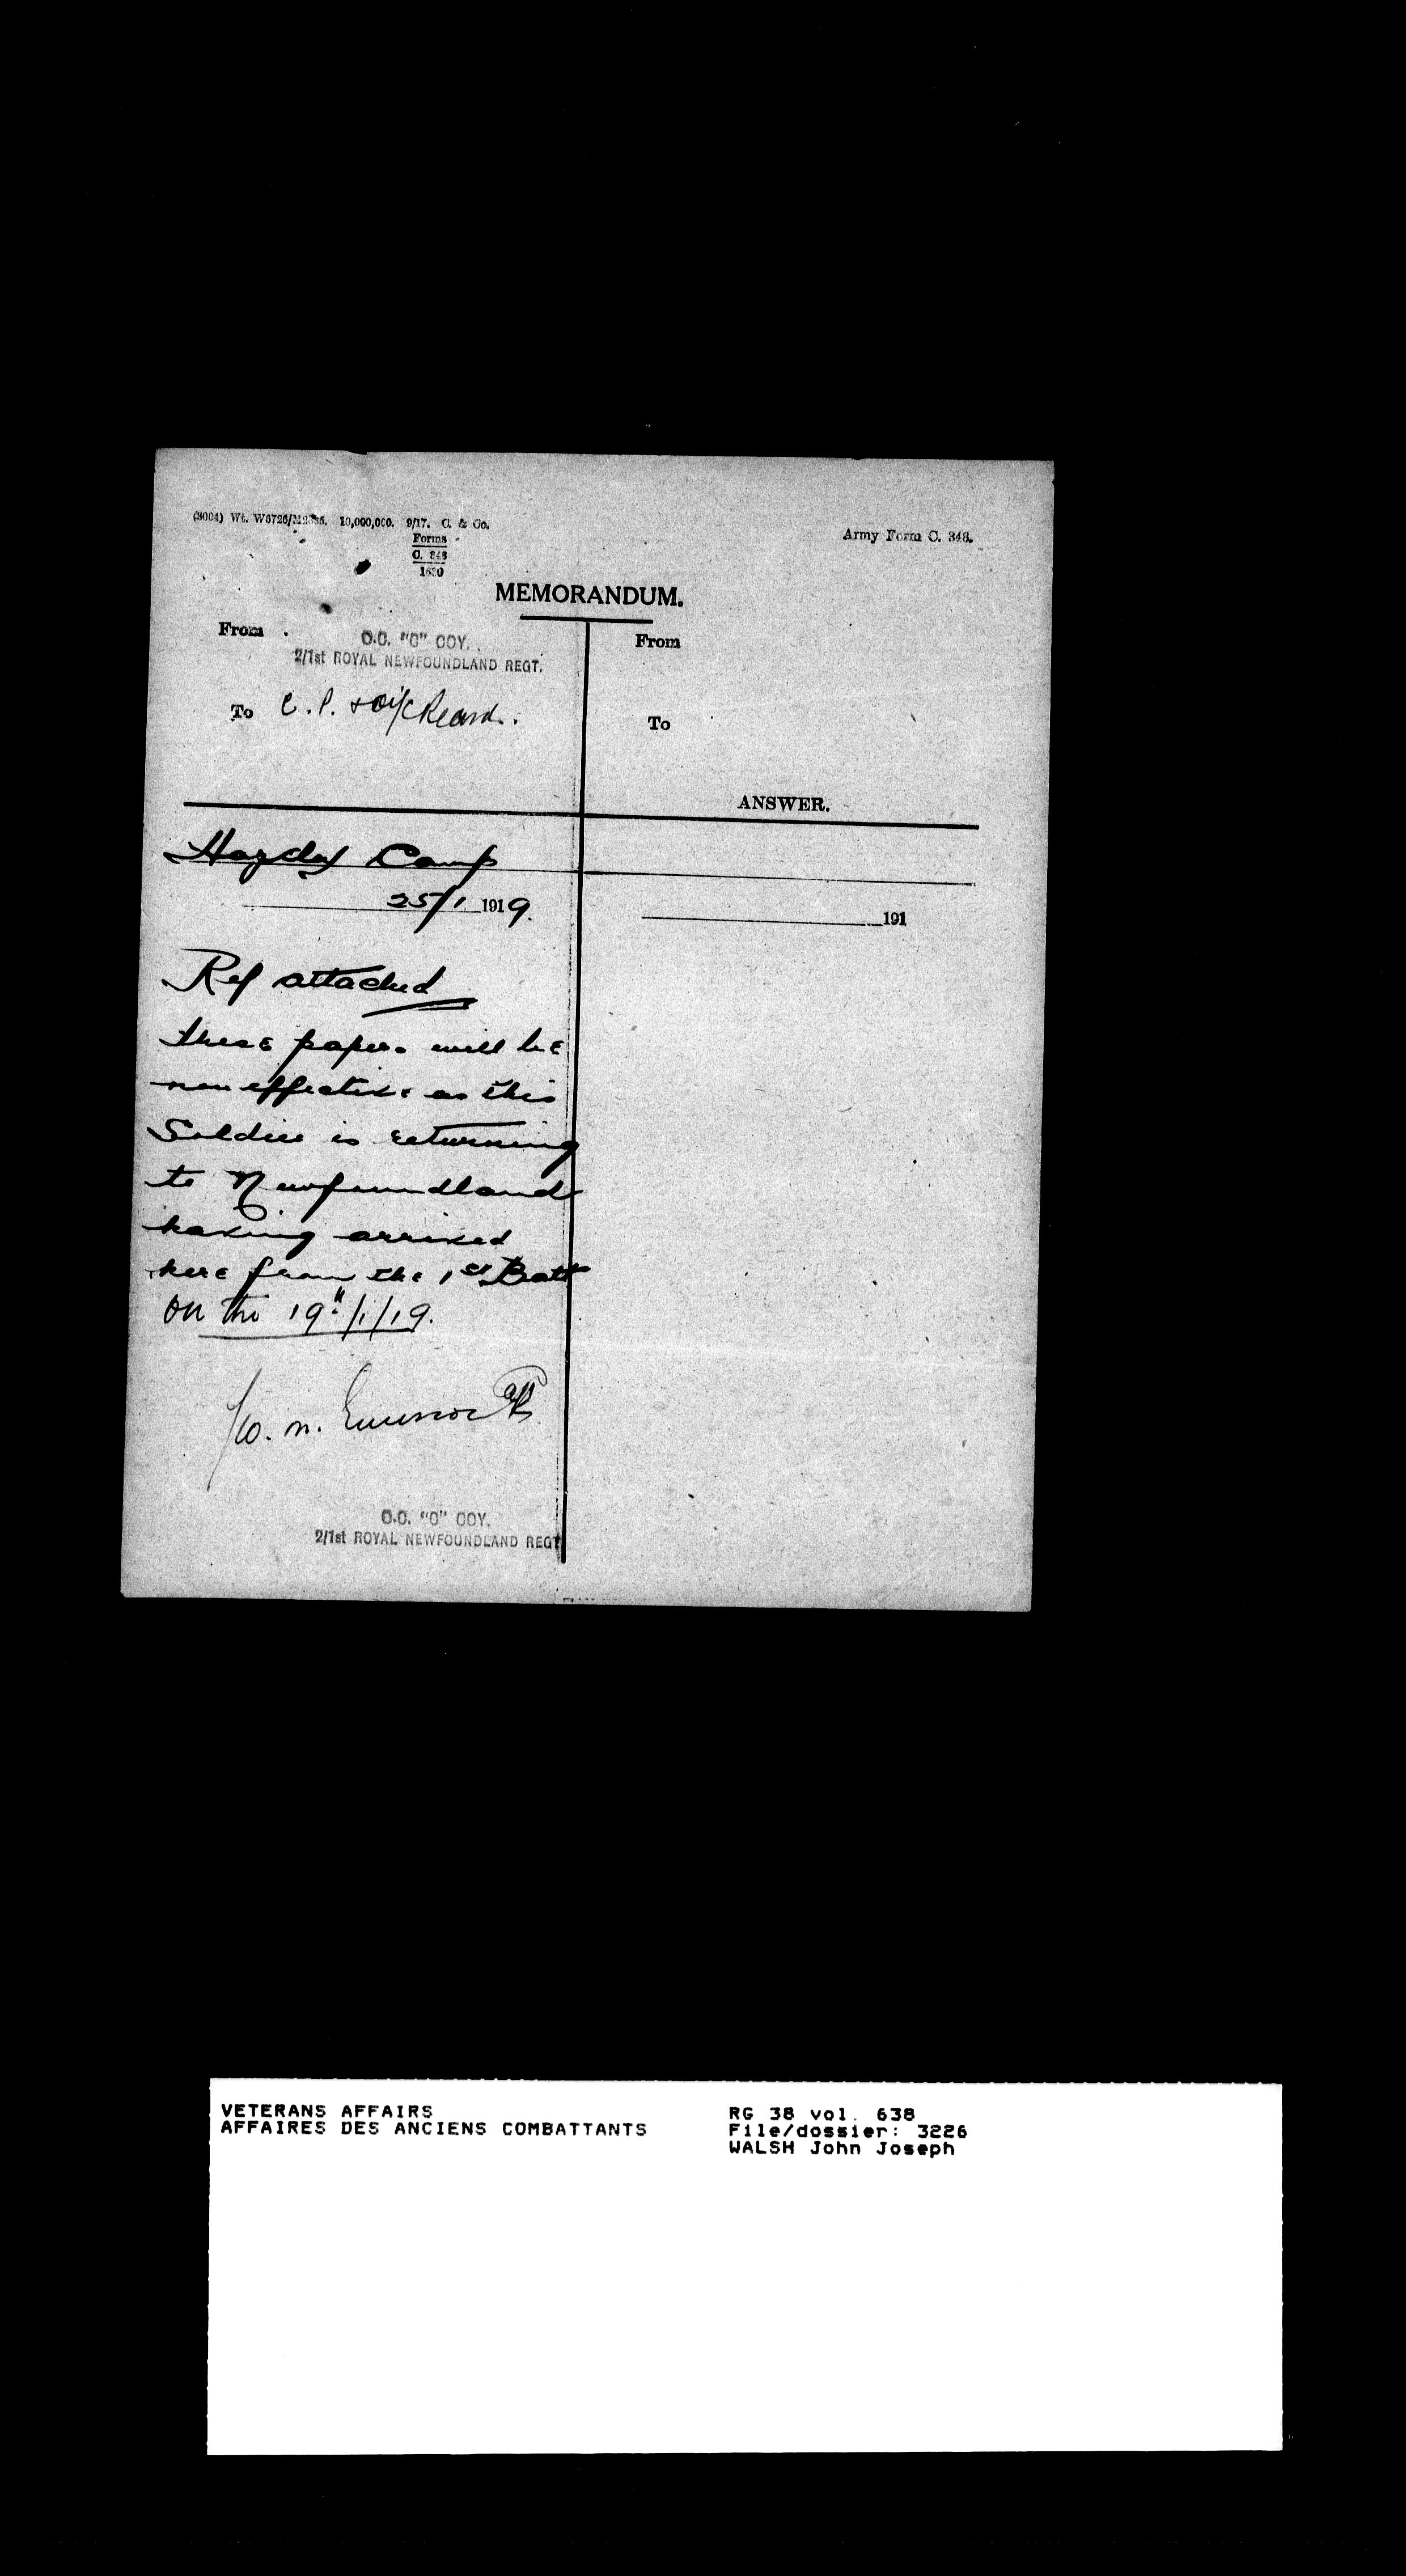 (8004) Wt. W6726/M2885. 10,000,000. 9/17. C. & Co.
Forms
C. 348
1650
Army Form C. 348.
MEMORANDUM.
From
O.C. "C" COY.
2/1st ROYAL NEWFOUNDLAND REGT.
To C. P. & O i/c
From
To
ANSWER.
Hazeley Camp
25/1 1919.
191
Ref attached
these papers will be
non effective as this
Soldier is returning
to Newfoundland
having arrived
here from the 1st Batt
on the 19"/1/19.
O.C. "C" COY.
2/1st ROYAL NEWFOUNDLAND REGT
VETERANS AFFAIRS
AFFAIRES DES ANCIENS COMBATTANTS
RG 38 vol. 638
File/dossier: 3226
WALSH John Joseph